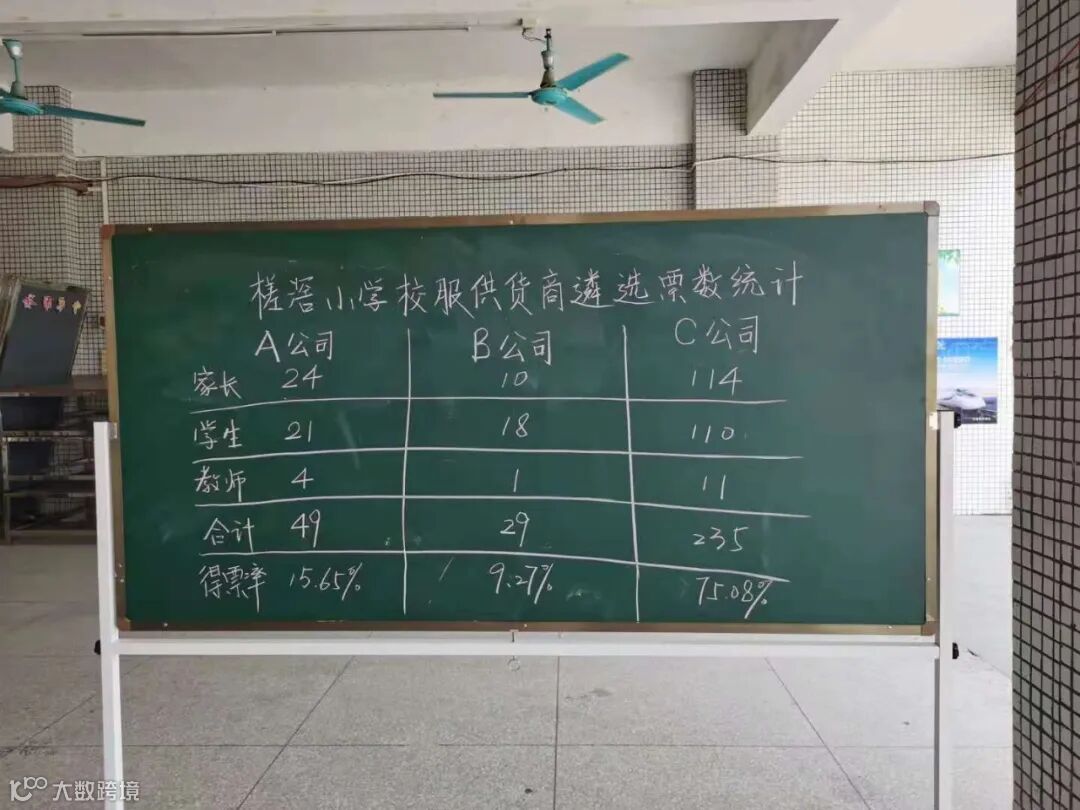 槎滘小学校服供货商遴选票数统计
A公司 B公司 C公司
家长 24 10 114
学生 21 18 110
教师 4 1 11
合计 49 29 235
得票率 15.65% 9.27% 75.08%
大数跨境